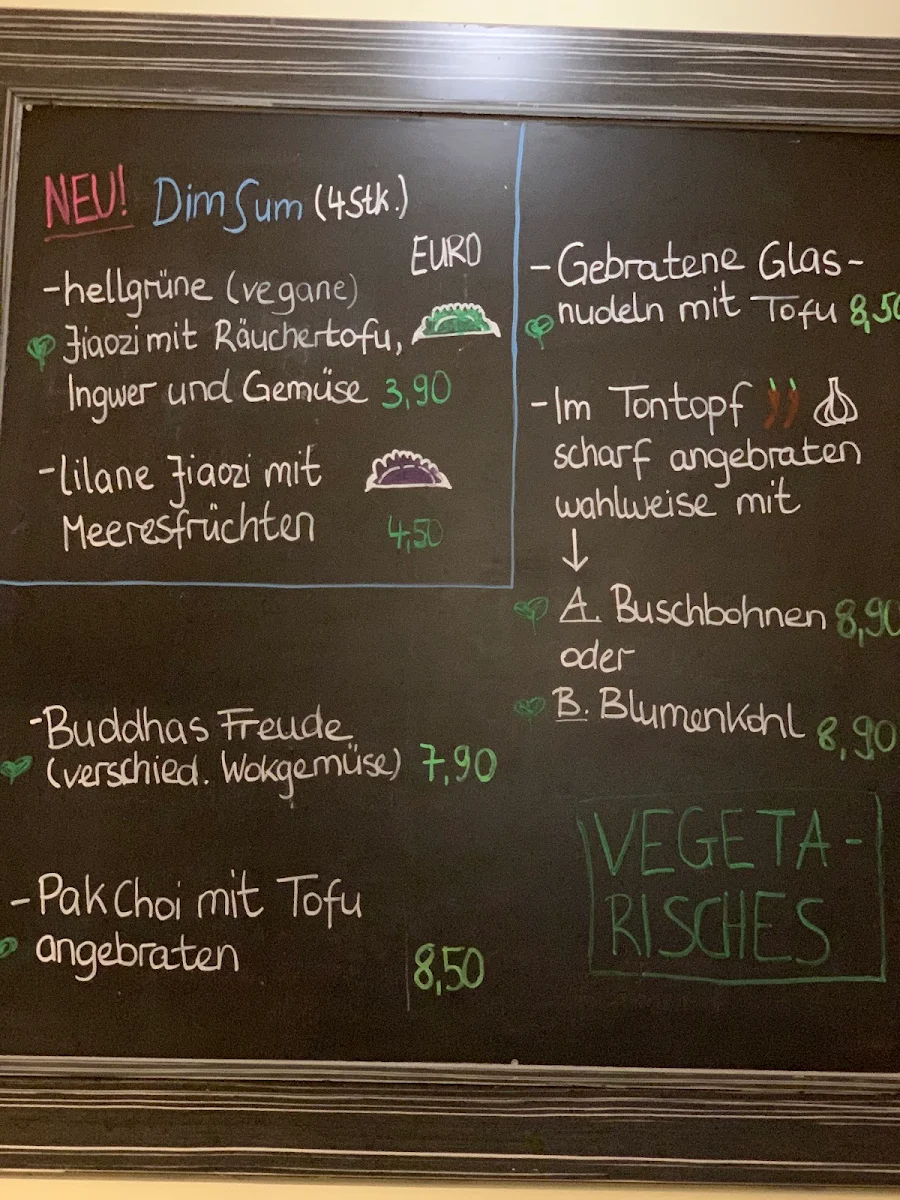 NEU! Dim Sum (4Stk.)
EURO
-hellgrüne (vegane)
Jiaozi mit Räuchertofu,
Ingwer und Gemüse 3,90
-lilane Jiaozi mit
Meeresfrüchten 4,50
-Buddhas Freude
(verschied. Wokgemüse) 7,90
-Pak Choi mit Tofu
angebraten 8,50
-Gebratene Glas-
nudeln mit Tofu 8,50
-Im Tontopf
scharf angebraten
wahlweise mit
A. Buschbohnen 8,90
oder
B. Blumenkohl 8,90
VEGETA-
RISCHES